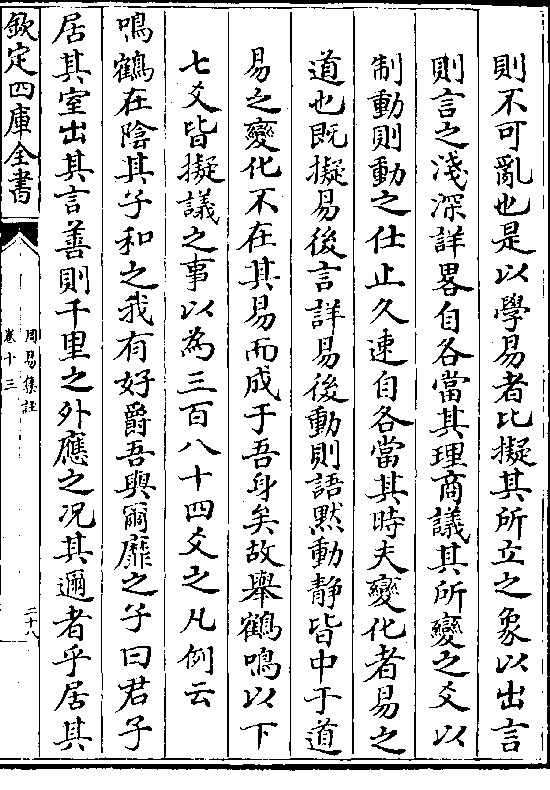 則不可亂也是以學易者比擬其所立之象以出言
則言之淺深詳畧自各當其理商議其所變之爻以
制動則動之仕止久速自各當其時夫變化者易之
道也既擬易後言詳易後動則語默動靜皆中于道
易之變化不在其易而成于吾身矣故舉鶴鳴以下
七爻皆擬議之事以為三百八十四爻之凡例云
鳴鶴在陰其子和之我有好爵吾與爾靡之子曰君子
居其室出其言善則千里之外應之况其邇者乎居其
欽定四庫全書
周易集註
卷十三
二十八